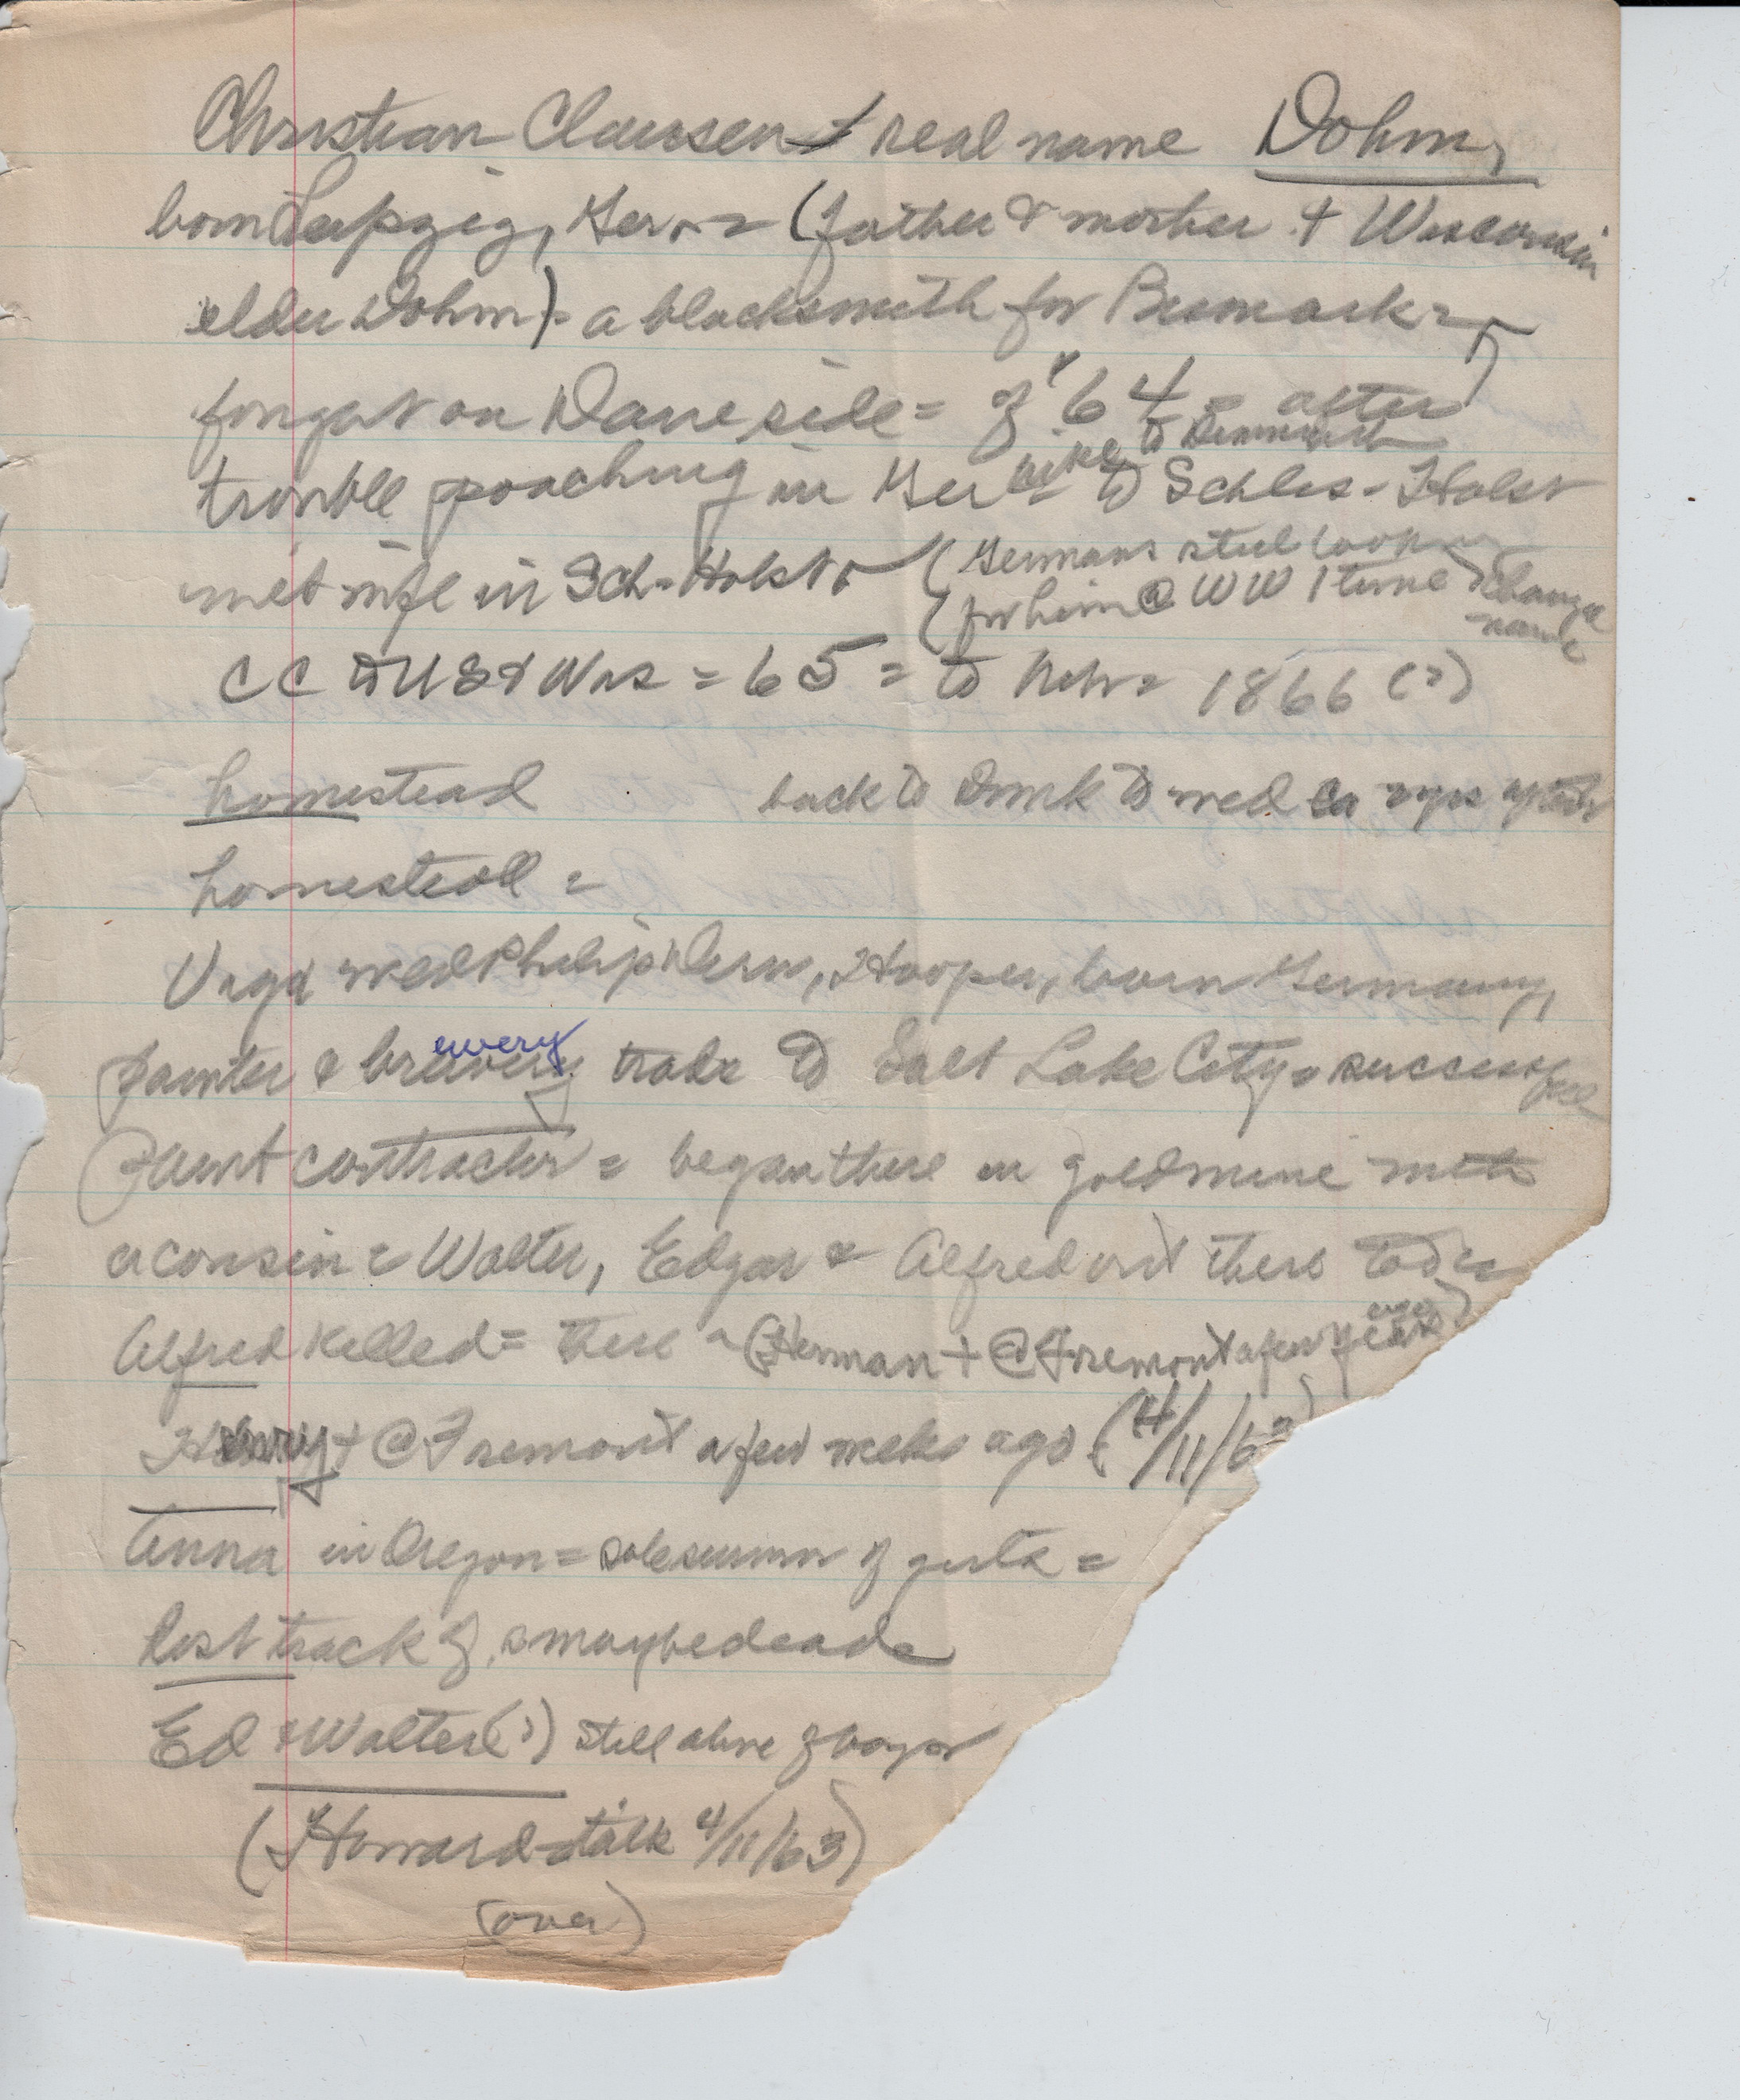 Christian Claussen + real name Dohm,
born Leipzig, Ger. = (father & mother + Wisconsin
elder Dohm) = a blacksmith for Bismark =
fought on Dane side = of '64 = after
to Denmark
trouble poaching in Ger to Schles-Holst
met wife in Sch-Holst. (Germans still looking
for him @ WW I time change name
CC to US & Wis = 65 = to Nebr = 1866 (?)
homestead back to Dmk to wed
homestead =
wed Philip, Hooper, born Germany,
ewery
painter & brewery trade to Salt Lake City = successful
paint contractor = began there in goldmine with
a cousin = Walter, Edgar & Alfred out there
Alfred killed = there (Herman + @ Fremont a few years ago)
Henry + @ Fremont a few weeks ago (4/11/63)
Anna in Oregon = sole survivor of girls =
lost track of, maybe dead
Ed & Walter(?) still alive of boys
(Howard talk 4/11/63)
(over)